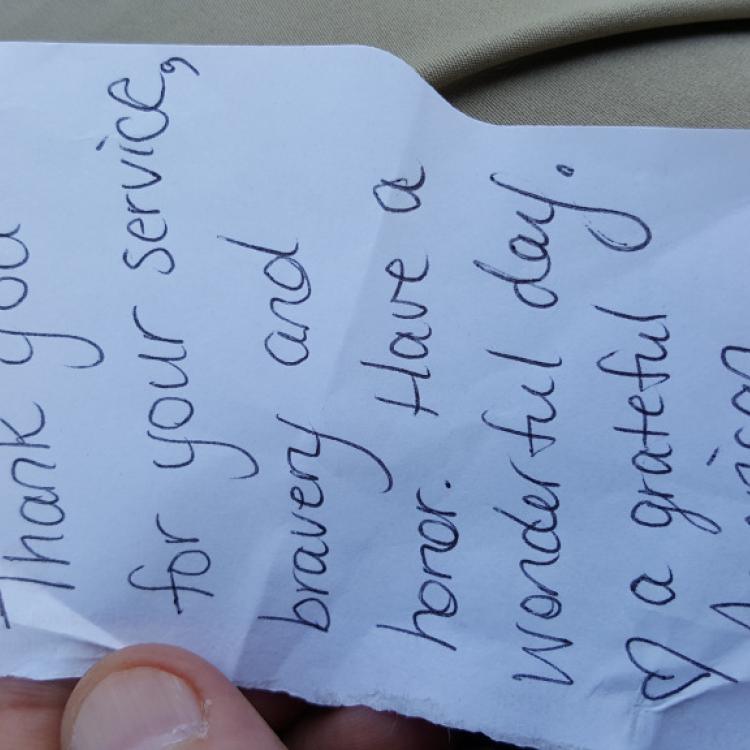 Thank you
for your service,
bravery and
honor. Have a
wonderful day.
♡ a grateful
American